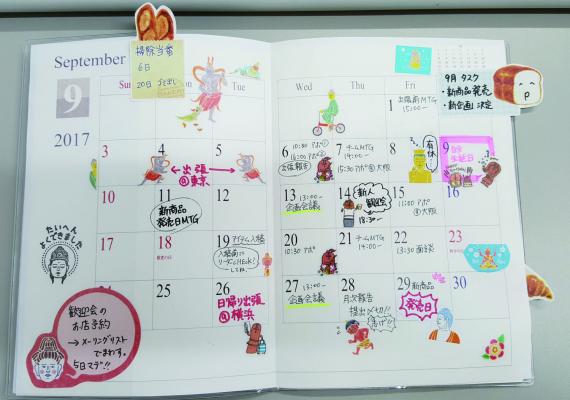 September
9
2017
掃除当番
6日
20日 ゴミ出し
Sun
Tue
Wed
Thu
Fri
9月 タスク
・新商品発売
・新企画 決定
1
出張前MTG
15:00〜
3
4
5
←出張→
@東京
6
10:30 アポ
出張報告
7
チームMTG
14:00〜
15:30 アポ @大阪
8
有休
9
10
11
新商品
発売日MTG
12
13
13:00〜
企画会議
14
新人
歓迎会
18:30〜
15
11:00 アポ
@大阪
16
17
18
19
アイテム入稿
入稿前に
20
10:30 アポ
21
チームMTG
14:00〜
22
13:30 面談
23
25
26
日帰り出張
@横浜
27
13:00〜
企画会議
28
月次報告
提出〆切!!
急げ!!
29
新商品
発売日
30
たいへん
よくできました
歓迎会の
お店予約
→メーリングリスト
でまわす。
5日マデ!!